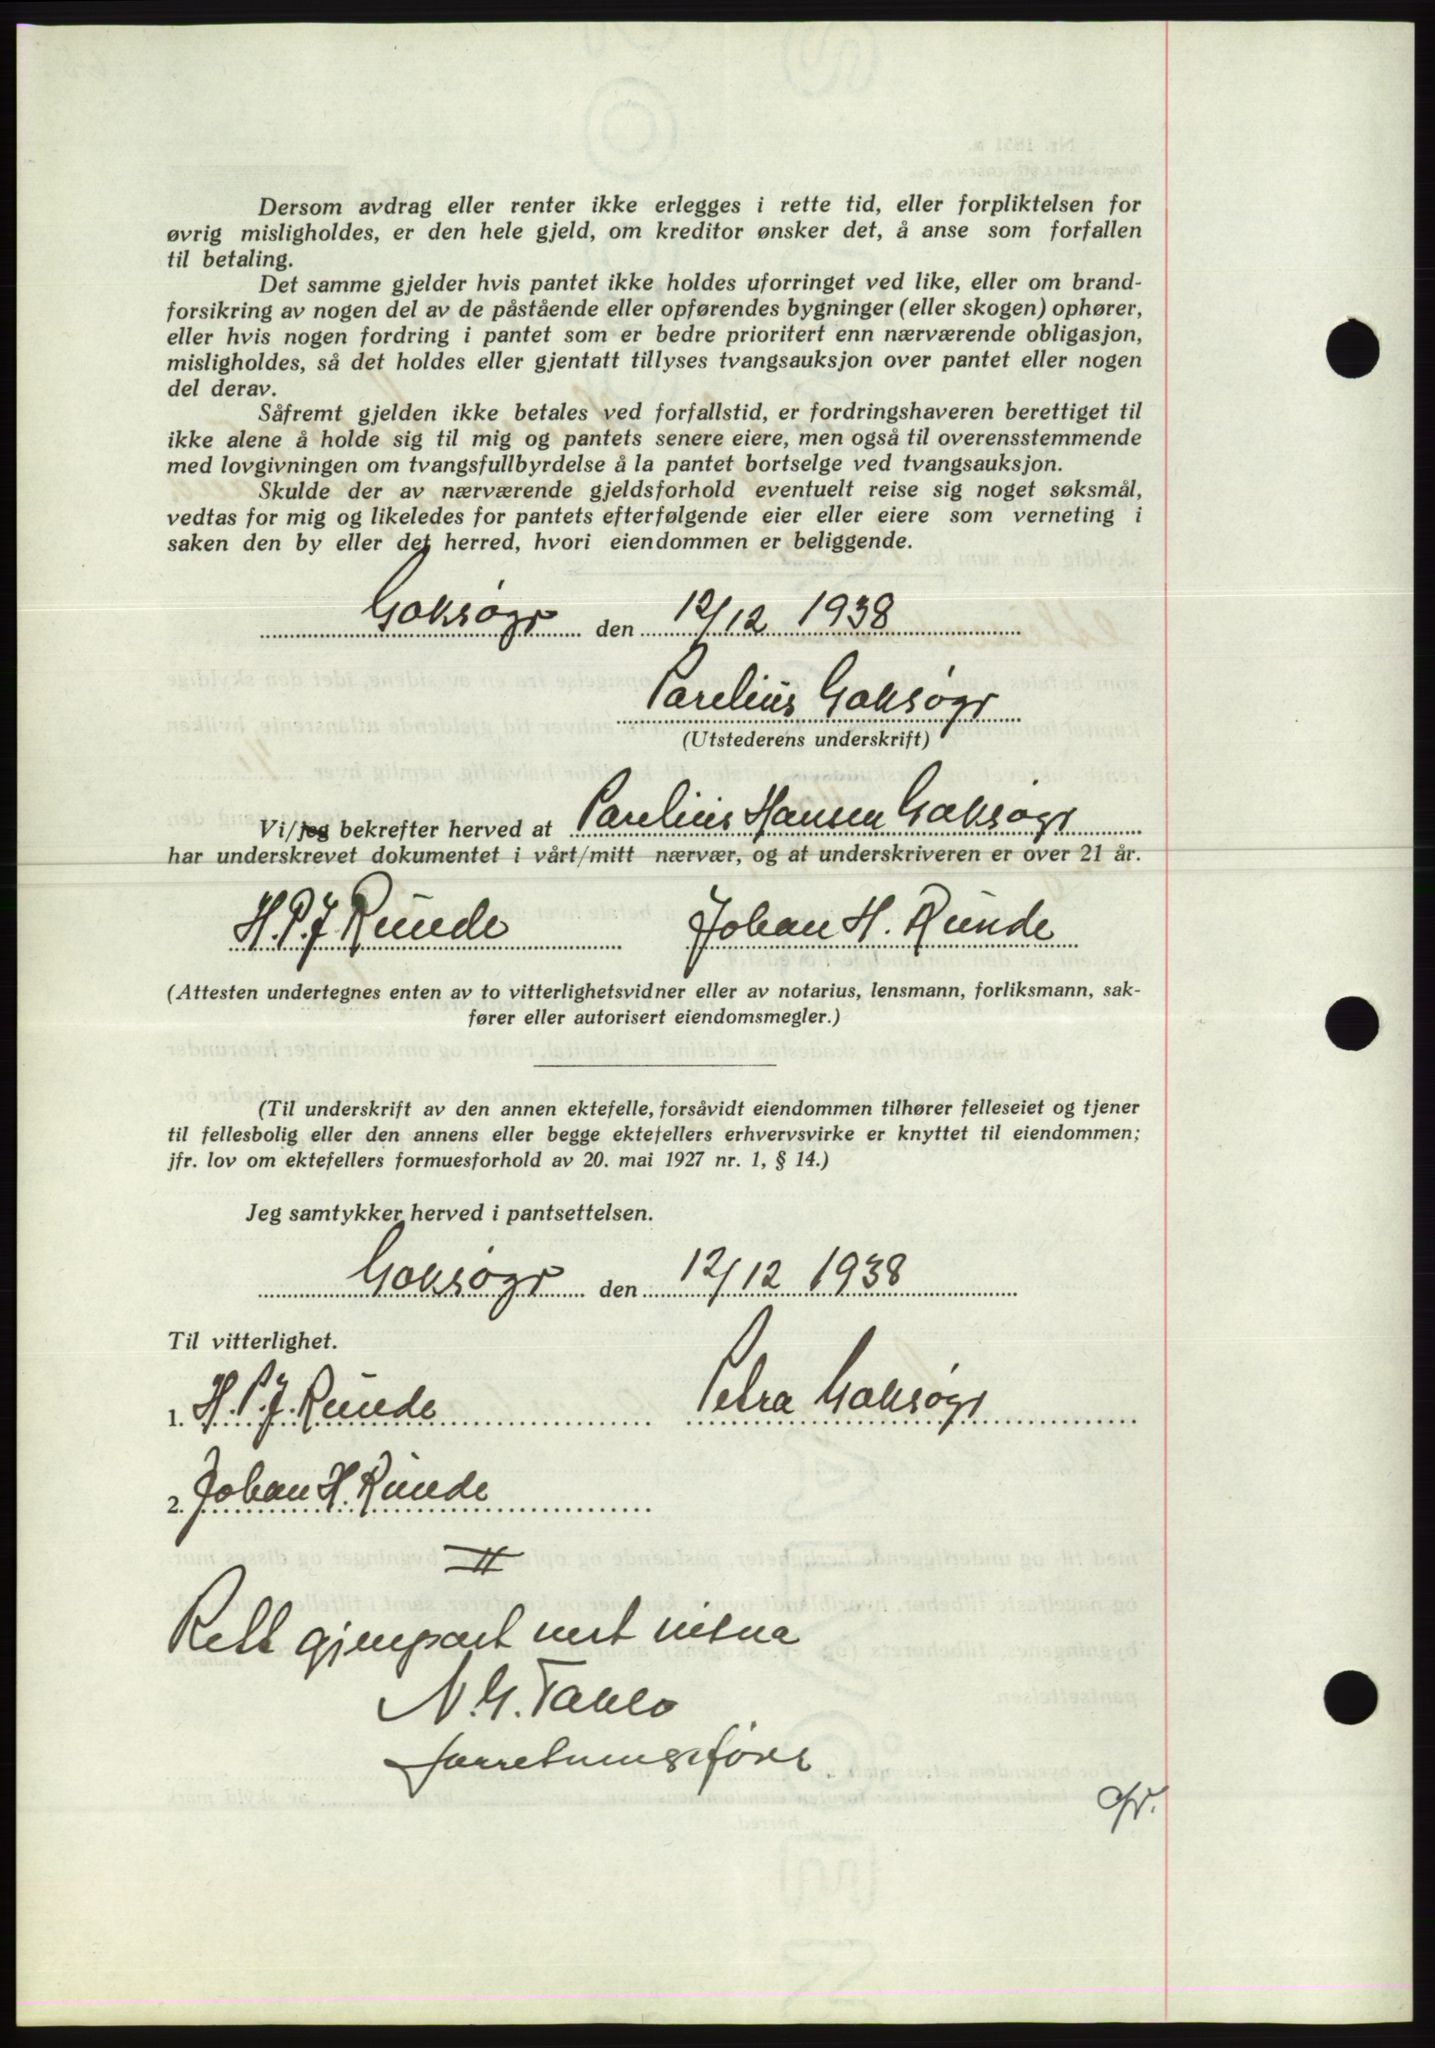 Dersom avdrag eller renter ikke erlegges i rette tid, eller forpliktelsen for
øvrig misligholdes, er den hele gjeld, om kreditor ønsker det, å anse som forfallen
til betaling.
Det samme gjelder hvis pantet ikke holdes uforringet ved like, eller om brand-
forsikring av nogen del av de påstående eller opførendes bygninger (eller skogen) ophører,
eller hvis nogen fordring i pantet som er bedre prioritert enn nærværende obligasjon,
misligholdes, så det holdes eller gjentatt tillyses tvangsauksjon over pantet eller nogen
del derav.
Såfremt gjelden ikke betales ved forfallstid, er fordringshaveren berettiget til
ikke alene å holde sig til mig og pantets senere eiere, men også til overensstemmende
med lovgivningen om tvangsfullbyrdelse å la pantet bortselge ved tvangsauksjon.
Skulde der av nærværende gjeldsforhold eventuelt reise sig noget søksmål,
vedtas for mig og likeledes for pantets efterfølgende eier eller eiere som verneting i
saken den by eller det herred, hvori eiendommen er beliggende.
Goksøyr den 12/12 1938
Parelius Goksøyr
(Utstederens underskrift)
Vi/jeg bekrefter herved at Parelius Hansen Goksøyr
har underskrevet dokumentet i vårt/mitt nærvær, og at underskriveren er over 21 år.
H. P. J. Runde Johan H. Runde
(Attesten undertegnes enten av to vitterlighetsvidner eller av notarius, lensmann, forliksmann, sak-
fører eller autorisert eiendomsmegler.)
(Til underskrift av den annen ektefelle, forsåvidt eiendommen tilhører felleseiet og tjener
til fellesbolig eller den annens eller begge ektefellers erhvervsvirke er knyttet til eiendommen;
jfr. lov om ektefellers formuesforhold av 20. mai 1927 nr. 1, § 14.)
Jeg samtykker herved i pantsettelsen.
Goksøyr den 12/12 1938
Til vitterlighet.
1. H. P. J. Runde Petra Goksøyr
2. Johan H. Runde
Rett gjenpart vert vitna
forretningsfører